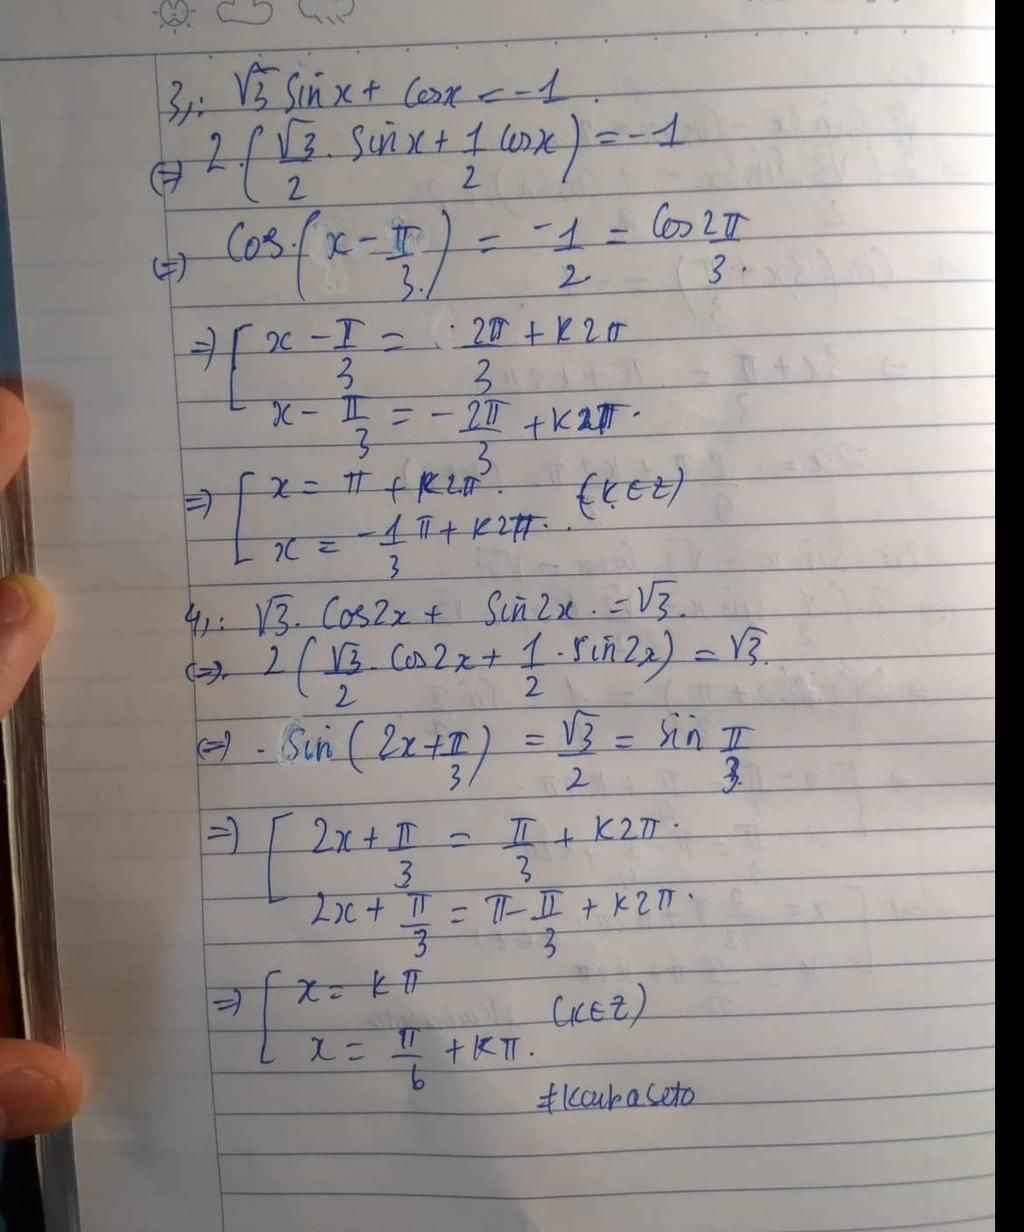 3,: √3 sin x + cos x = -1.
(=) 2.(√3/2 . sin x + 1/2 cos x) = -1
(=) cos.(x - π/3.) = -1/2 = cos 2π/3.
=) [ x - π/3 = 2π/3 + k2π
x - π/3 = -2π/3 + k2π.
=) [ x = π + k2π. (k ∈ Z)
x = -1/3 π + k2π.
4,: √3. cos2x + sin2x. = √3.
(=). 2(√3/2 . cos2x + 1/2 . sin2x) = √3.
(=) . sin(2x + π/3) = √3/2 = sin π/3.
=) [ 2x + π/3 = π/3 + k2π.
2x + π/3 = π - π/3 + k2π.
=) [ x = kπ
(k ∈ Z)
x = π/6 + kπ.